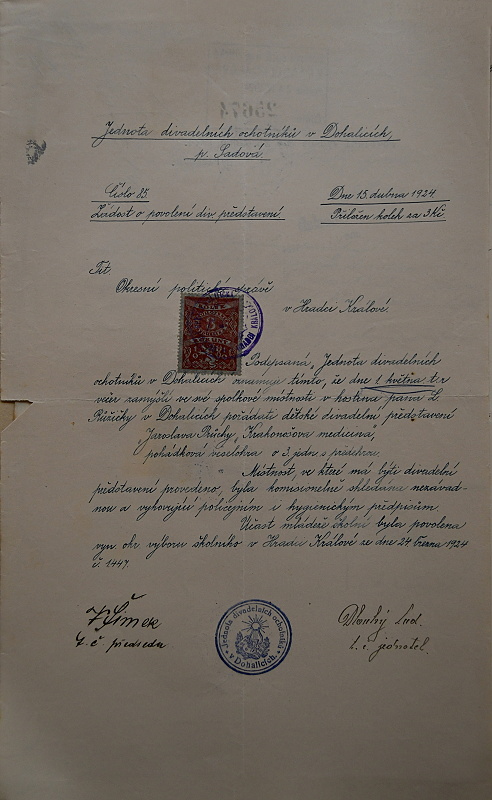 Jednota divadelních ochotníků v Dohalicích,
p. Sadová.
Číslo 85.
Dne 15. dubna 1924.
Žádost o povolení div. představení.
Přiložen kolek za 3 Kč
Tit.
Okresní politické správě
v Hradci Králové.
Podepsaná, Jednota divadelních
ochotníků v Dohalicích oznamuje tímto, že dne 1. května t.r.
večer zamýšlí ve své spolkové místnosti v hostinci pana L.
Růžičky v Dohalicích pořádati dětské divadelní představení
„Jaroslava Průchy, Krakonošova medicina",
pohádková veselohra o 3. jedn. s předehrou.
Místnost, ve které má býti divadelní
představení provedeno, byla komisionelně shledána nezávad-
nou a vyhovující policejním i hygienickým předpisům.
Účast mládeže školní byla povolena
vyn. okr. výboru školního v Hradci Králové ze dne 24. března 1924
č. 1447.
Šimek
t. č. předseda
Dlouhý Lud.
t. č. jednatel.
Jednota divadelních ochotníků
v Dohalicích.